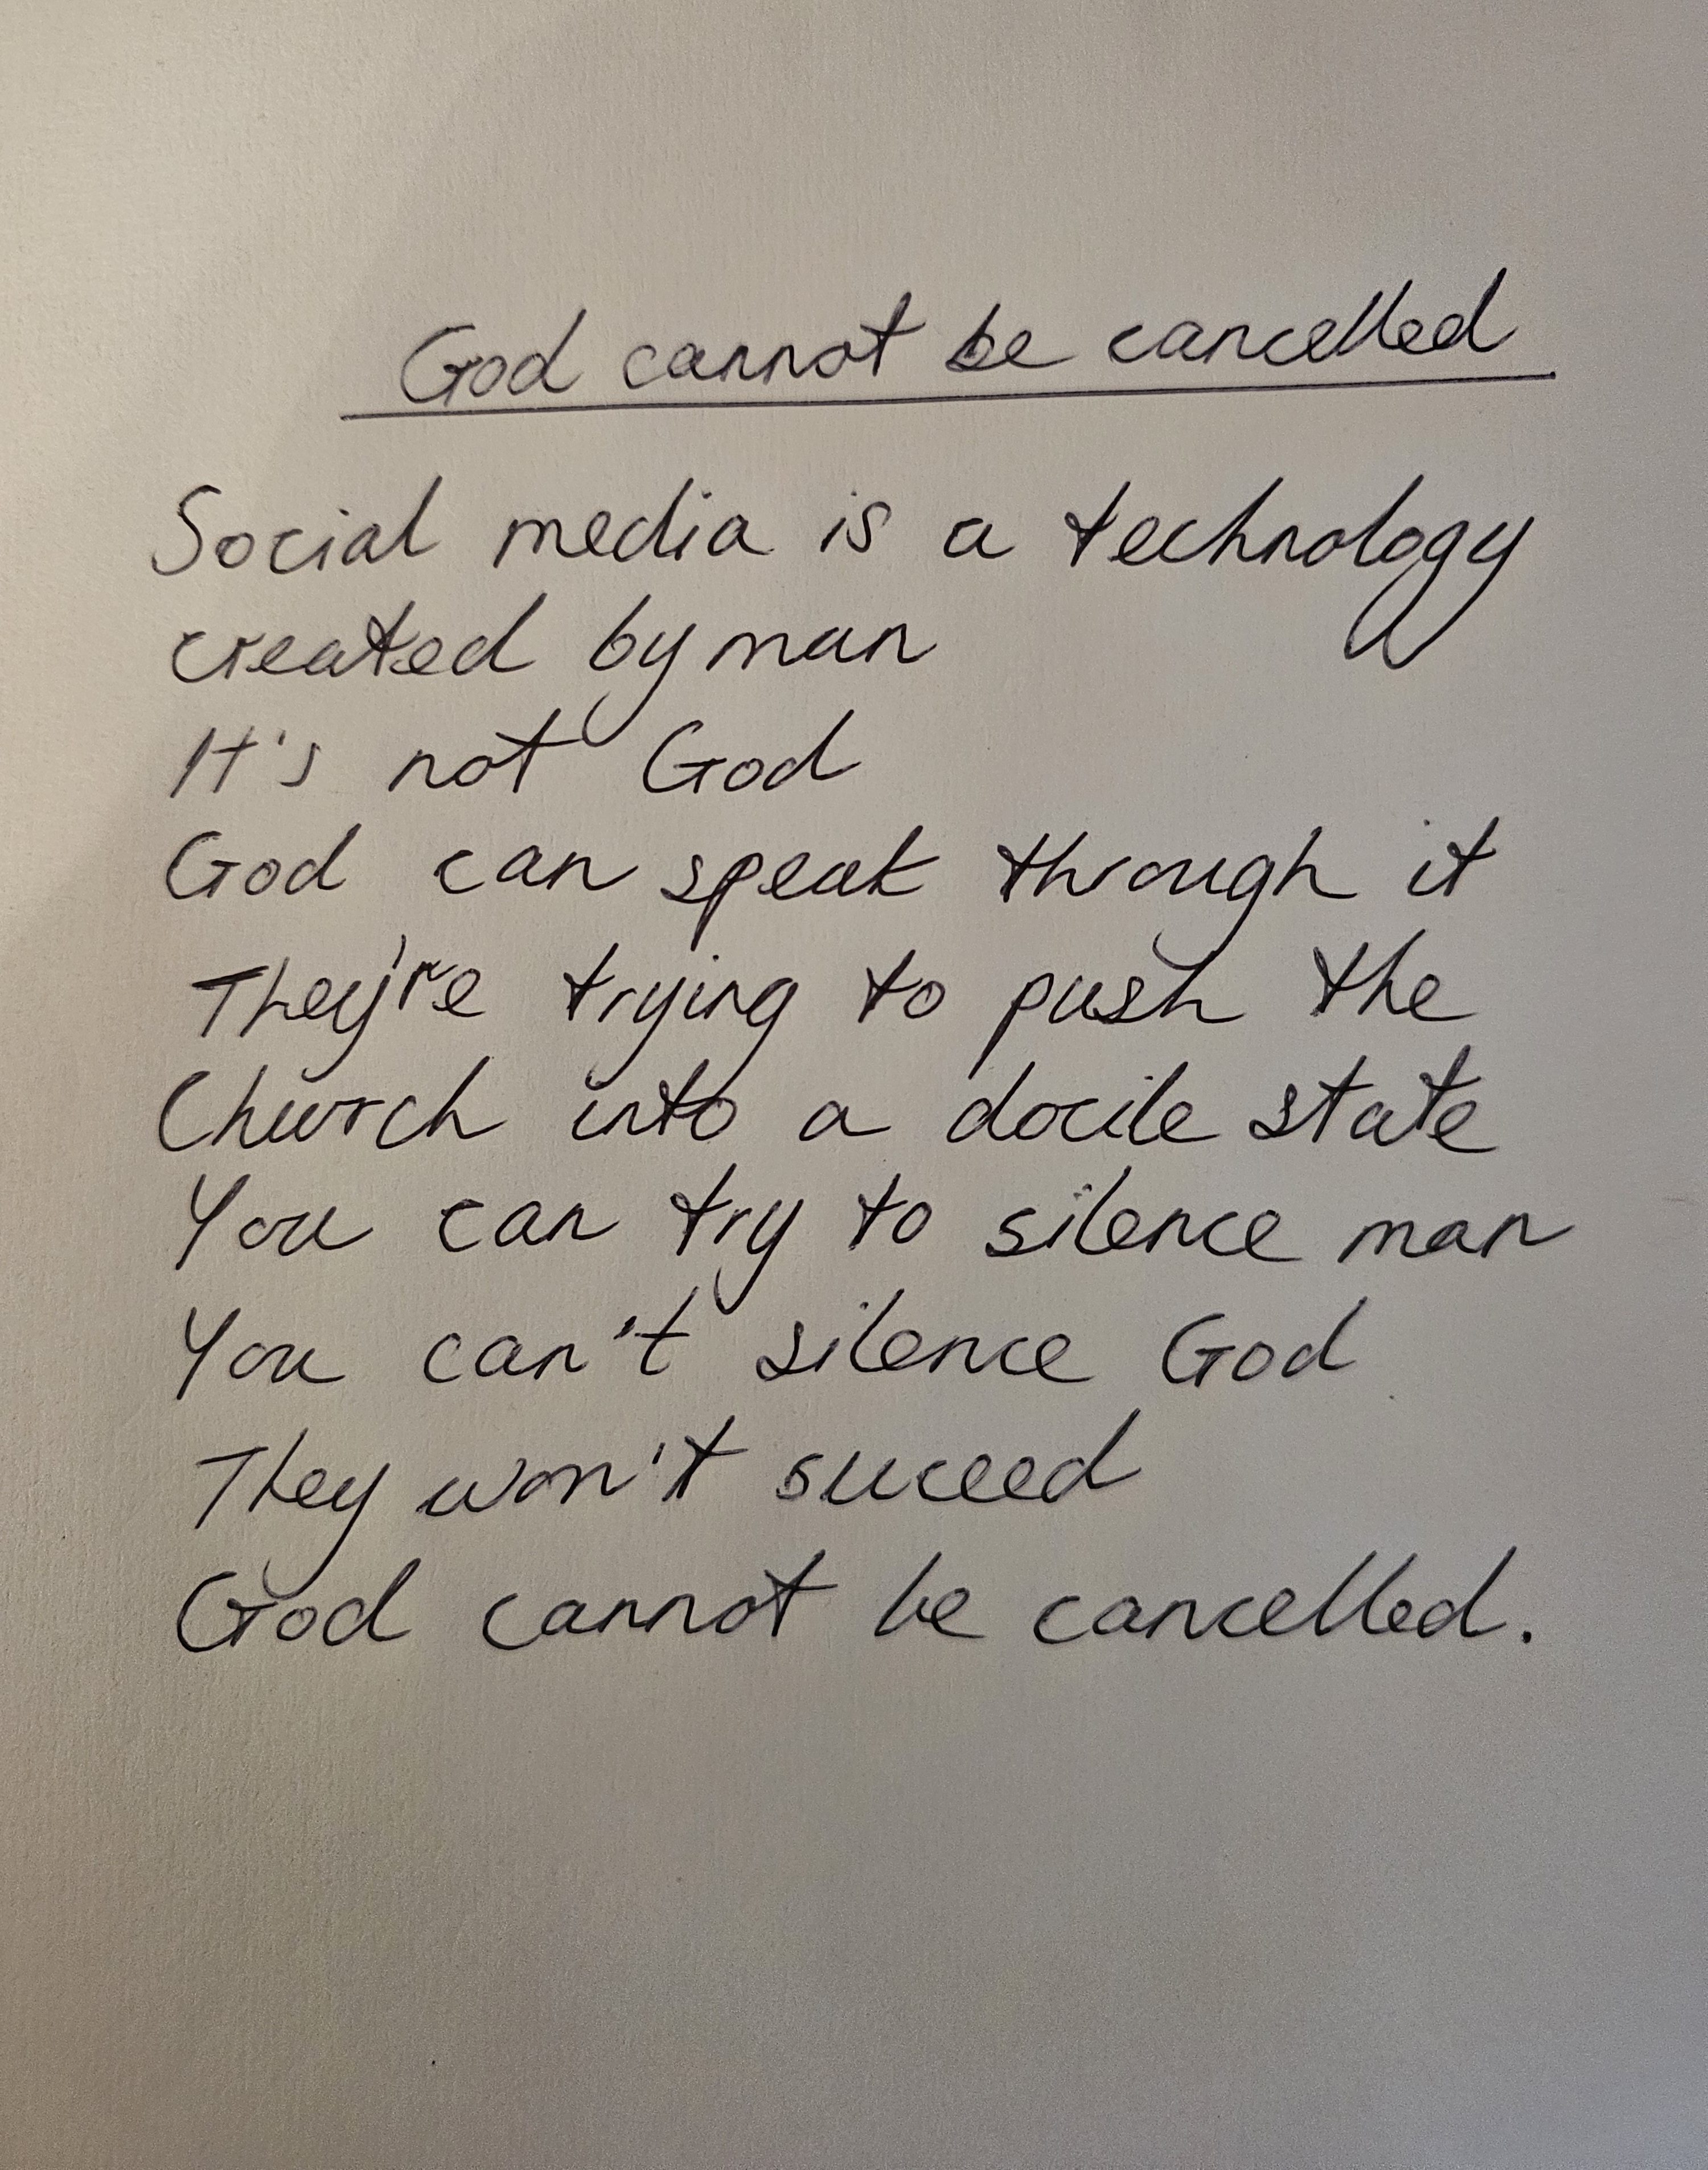 God cannot be cancelled
Social media is a technology
created by man
It's not God
God can speak through it
They're trying to push the
Church into a docile state
You can try to silence man
You can't silence God
They won't suceed
God cannot be cancelled.